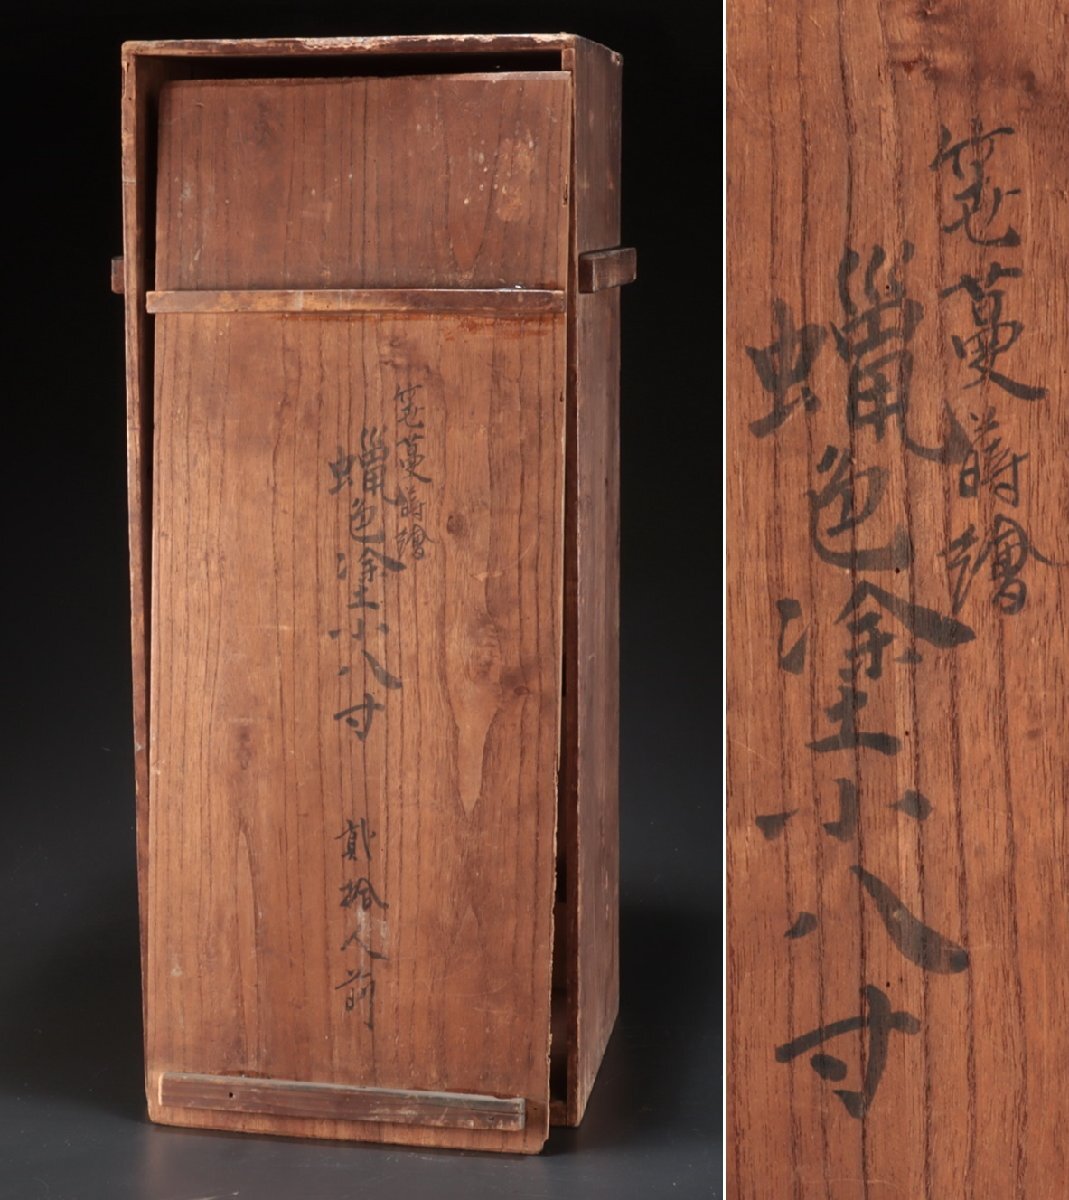 笹蔓蒔繪
蠟色塗小八寸 貳拾人前
笹蔓蒔繪
蠟色塗小八寸